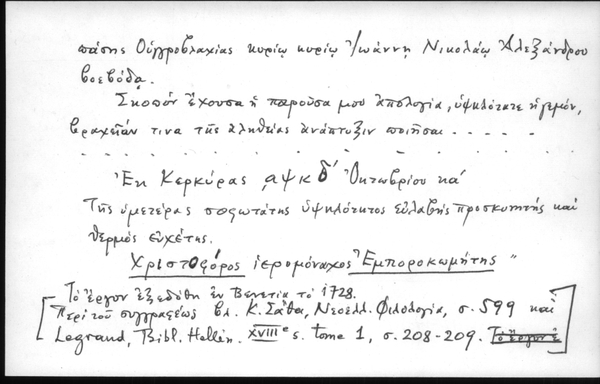 πάσης Οὐγγροβλαχίας κυρίῳ κυρίῳ Ἰωάννῃ Νικολάῳ Ἀλεξάνδρου
βοεβόδᾳ.
Σκοπὸν ἔχουσα ἡ παροῦσα μου ἀπολογία, ὑψηλότατε ἡγεμόν,
βραχεῖάν τινα τῆς ἀληθείας ἀνάπτυξιν ποιῆσαι . . . . .
. . . . . . . . . . . . . . . .
Ἐκ Κερκύρας ͵αψκδ΄ Ὀκτωβρίου κα΄
Τῆς ὑμετέρας σοφωτάτης ὑψηλότητος εὐλαβὴς προσκυνητής καὶ
θερμὸς εὐχέτης.
Χριστοφόρος ἱερομόναχος Ἐμποροκωμήτης "
Τὸ ἔργον ἐξεδόθη ἐν Βενετίᾳ τὸ 1728.
[Περὶ τοῦ συγγραφέως βλ. Κ. Σάθα, Νεοελλ. Φιλολογία, σ. 599 καὶ
Legrand, Bibl. Hellén. XVIIIe s. tome 1, σ. 208-209. Τὸ ἔργον ἐ]